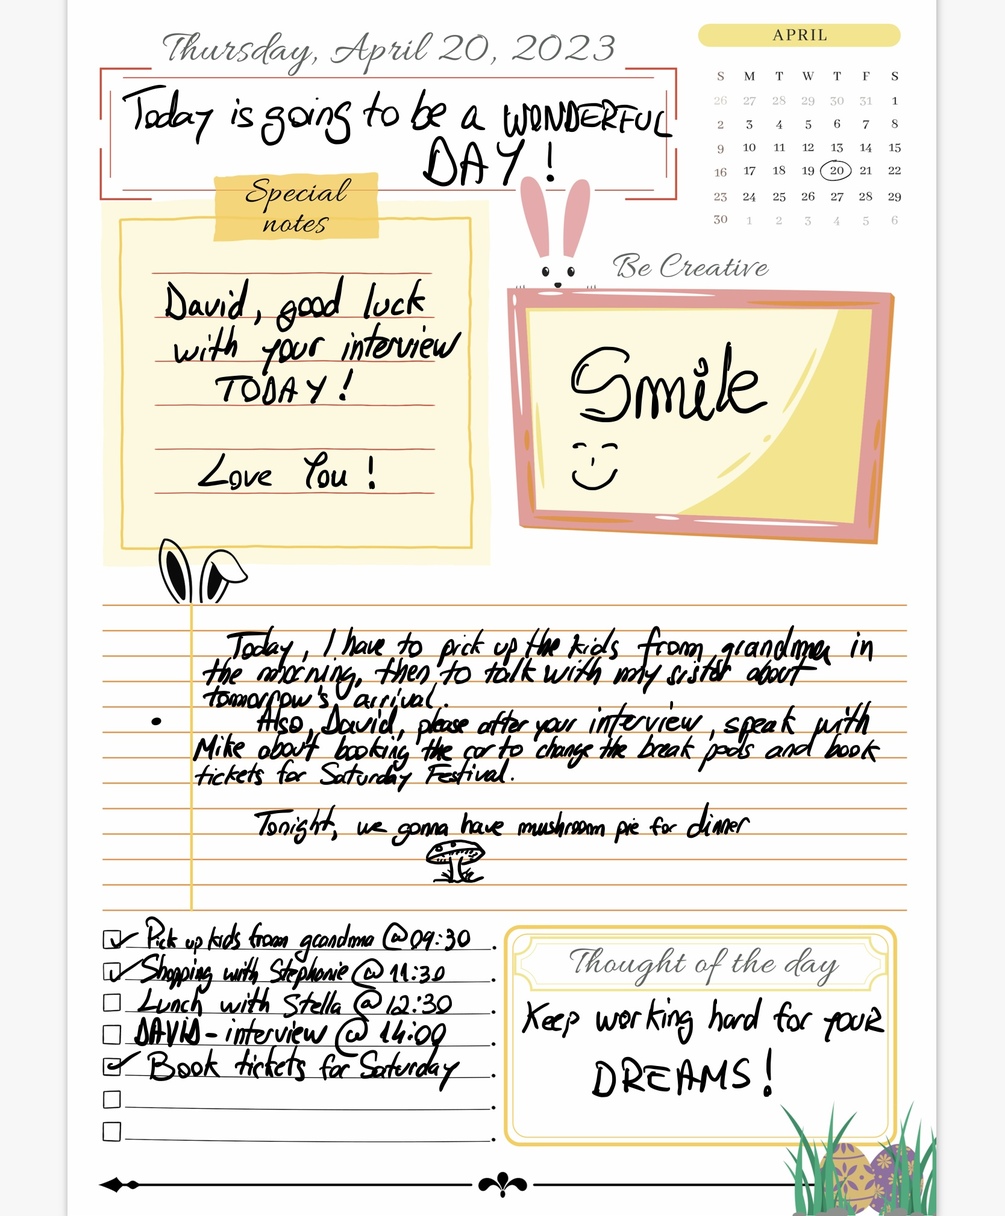 Thursday, April 20, 2023
Today is going to be a WONDERFUL
DAY!
APRIL
S M T W T F S
26 27 28 29 30 31 1
2 3 4 5 6 7 8
9 10 11 12 13 14 15
16 17 18 19 20 21 22
23 24 25 26 27 28 29
30 1 2 3 4 5 6
Special
notes
David, good luck
with your interview
TODAY!
Love You!
Be Creative
Smile
Today, I have to pick up the kids from grandma in
the morning, then to talk with my sister about
tomorrow's arrival.
• Also, David, please after your interview, speak with
Mike about booking the car to change the break pads and book
tickets for Saturday Festival.
Tonight, we gonna have mushroom pie for dinner
Pick up kids from grandma @ 09:30
Shopping with Stephanie @ 11:30
Lunch with Stella @ 12:30
DAVID - interview @ 14:00
Book tickets for Saturday
Thought of the day
Keep working hard for youR
DREAMS!